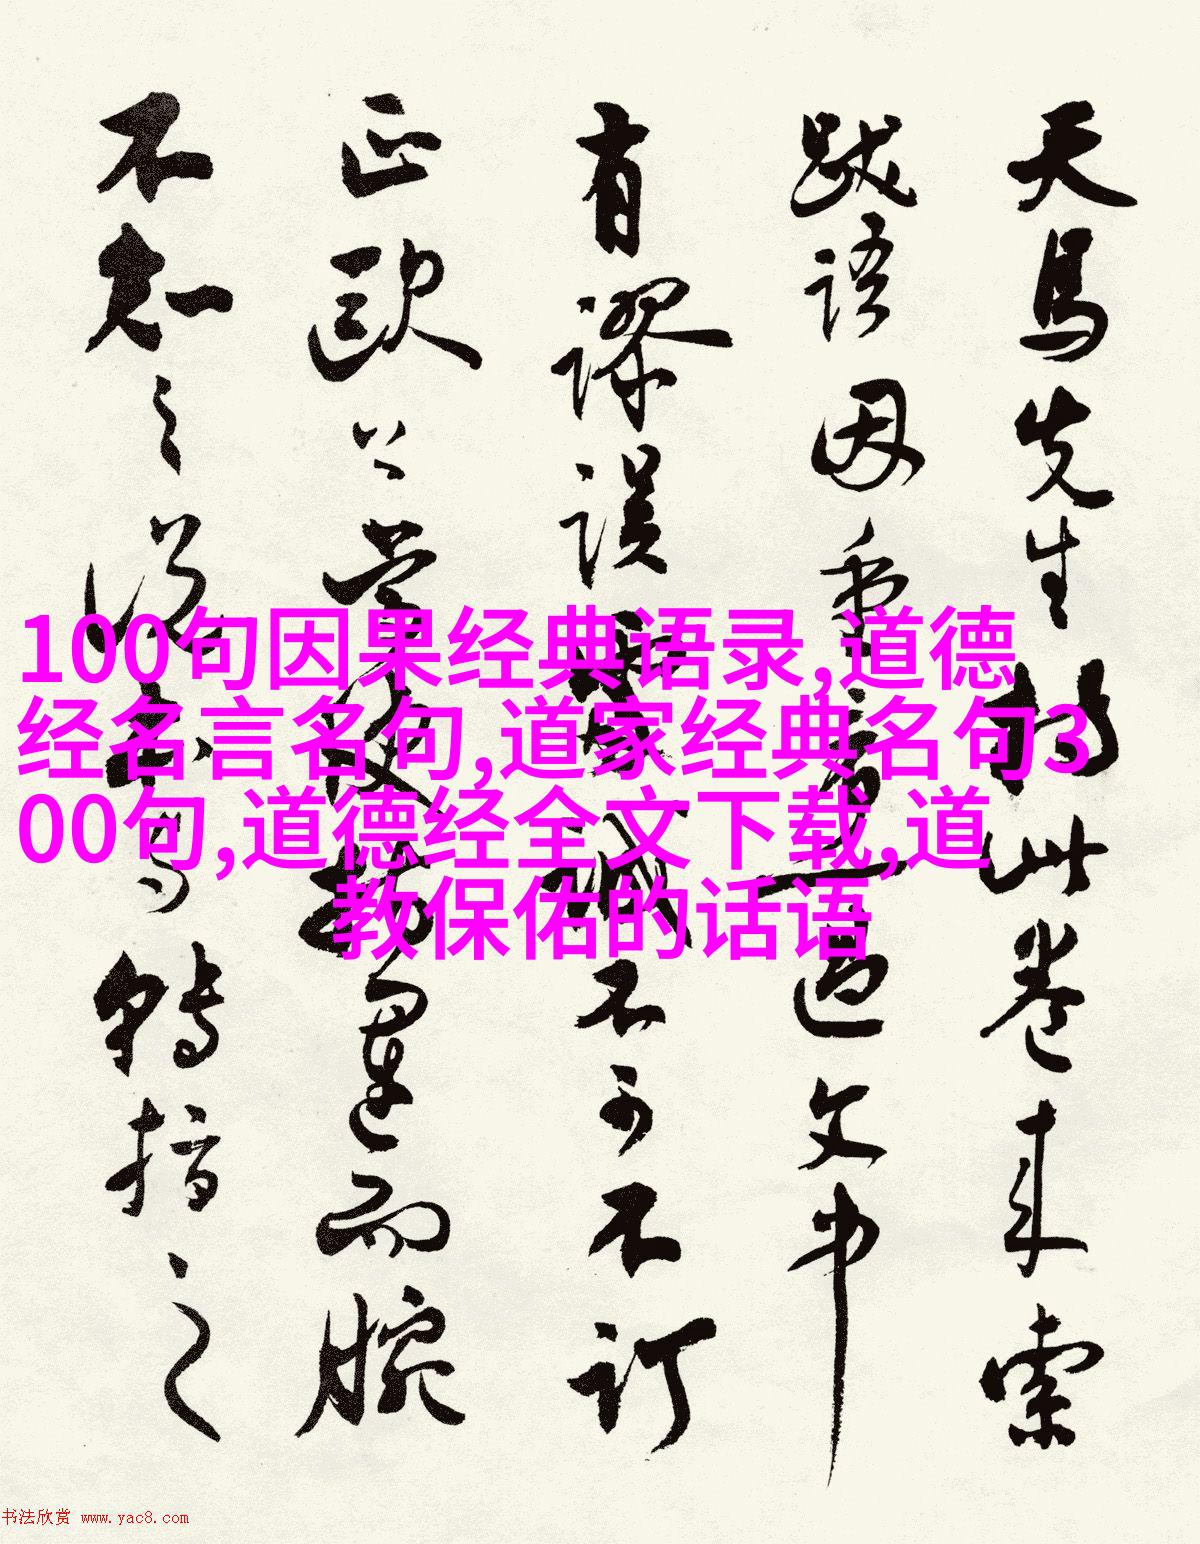 天馬先生持此卷来索
跋語因重書一過文中
有謬误
不可不訂
正欧公嘗
運而腕
不知之
轉指之
100句因果经典语录,道德
经名言名句,道家经典名句3
00句,道德经全文下载,道
教保佑的话语
书法欣赏 www.yac8.com